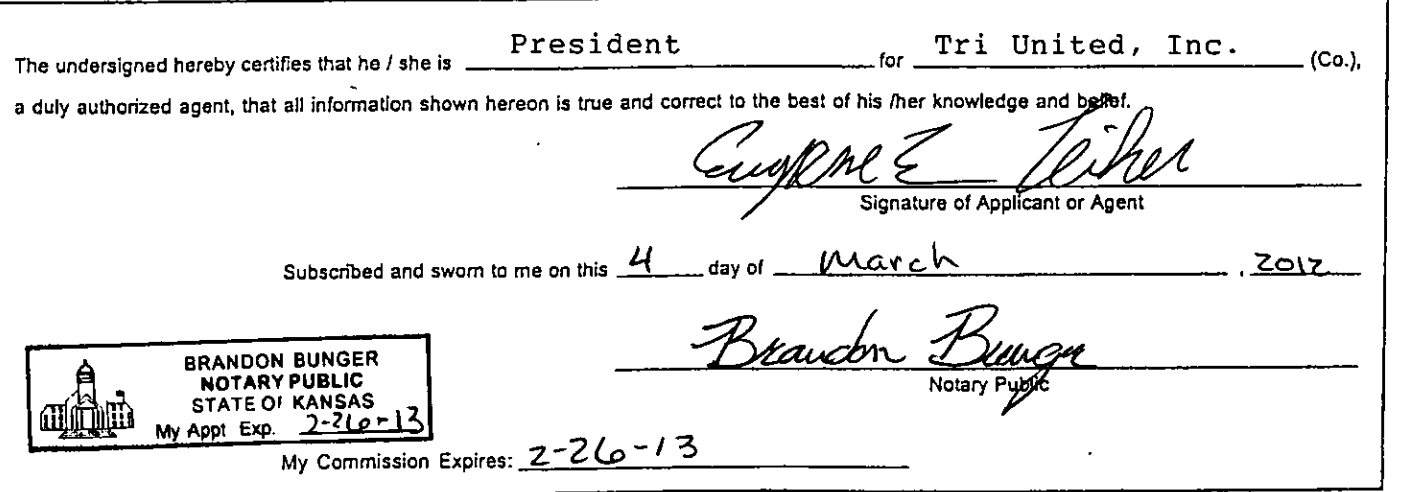 The undersigned hereby certifies that he / she is President for Tri United, Inc. (Co.),
a duly authorized agent, that all information shown hereon is true and correct to the best of his /her knowledge and belief.
Eugene E
Signature of Applicant or Agent
Subscribed and sworn to me on this 4 day of March , 2012
Brandon Bunger
Notary Public
BRANDON BUNGER
NOTARY PUBLIC
STATE OF KANSAS
My Appt Exp. 2-26-13
My Commission Expires: 2-26-13